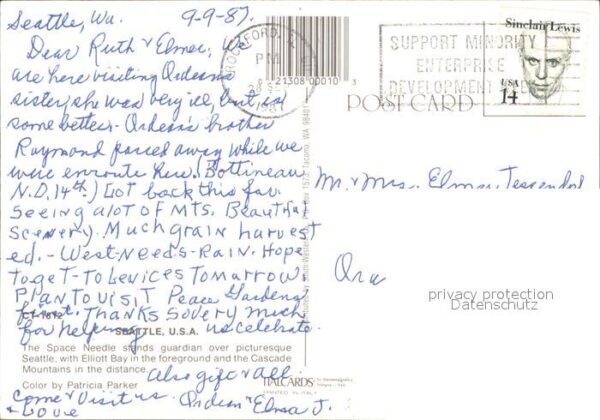 Seattle, Wa. 9-9-87.
Dear Ruth & Elmer, We
are here visiting Ordean's
sister, she was very ice, but is
some better - Ordean's brother
Raymond passed away while we
were enroute here. (Bottineau
N.D. 14th) Got back this far
Seeing a lot of Mts. Beautiful
Scenery. Much grain harvest
ed. - West-Needs-Rain. Hope
To get - To Levices Tomorrow
Plan to visit Peace Gardens
first. Thanks so very much
for helping us celebrate
Also gift & all.
Come & Visit us
& Love Ordean & Elma J.
CT-1872
SEATTLE, U.S.A.
The Space Needle stands guardian over picturesque
Seattle, with Elliott Bay in the foreground and the Cascade
Mountains in the distance.
Color by Patricia Parker
21308 00010 3
PM
1987
SUPPORT MINORITY
ENTERPRISE
DEVELOPMENT
Sinclair Lewis
USA
14
POST CARD
Box 1573 Tacoma, WA 98401
Mr & Mrs. Elmer
privacy protection
Datenschutz
ITALCARDS
PRINTED IN ITALY